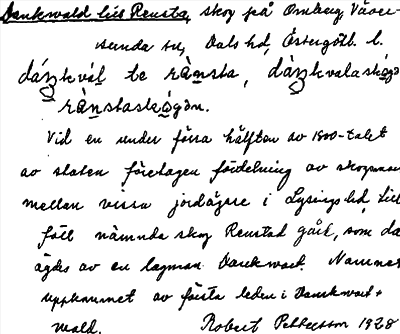 Danckwald till Renstad, skog på Omberg, Väver-
sunda sn, Dals hd, Östergötl. l.
te rä̀nsta,
rä̀nstaskógən.
Vid en under förra hälften av 1800-talet
av staten företagen fördelning av skogarna
mellan vissa jordägare i Lysings hd till-
föll nämnda skog Renstad gård, som då
ägdes av en lagman Danckwart. Namnet
uppkommet av första leden i Danckwart +
wald. Robert Pettersson 1928